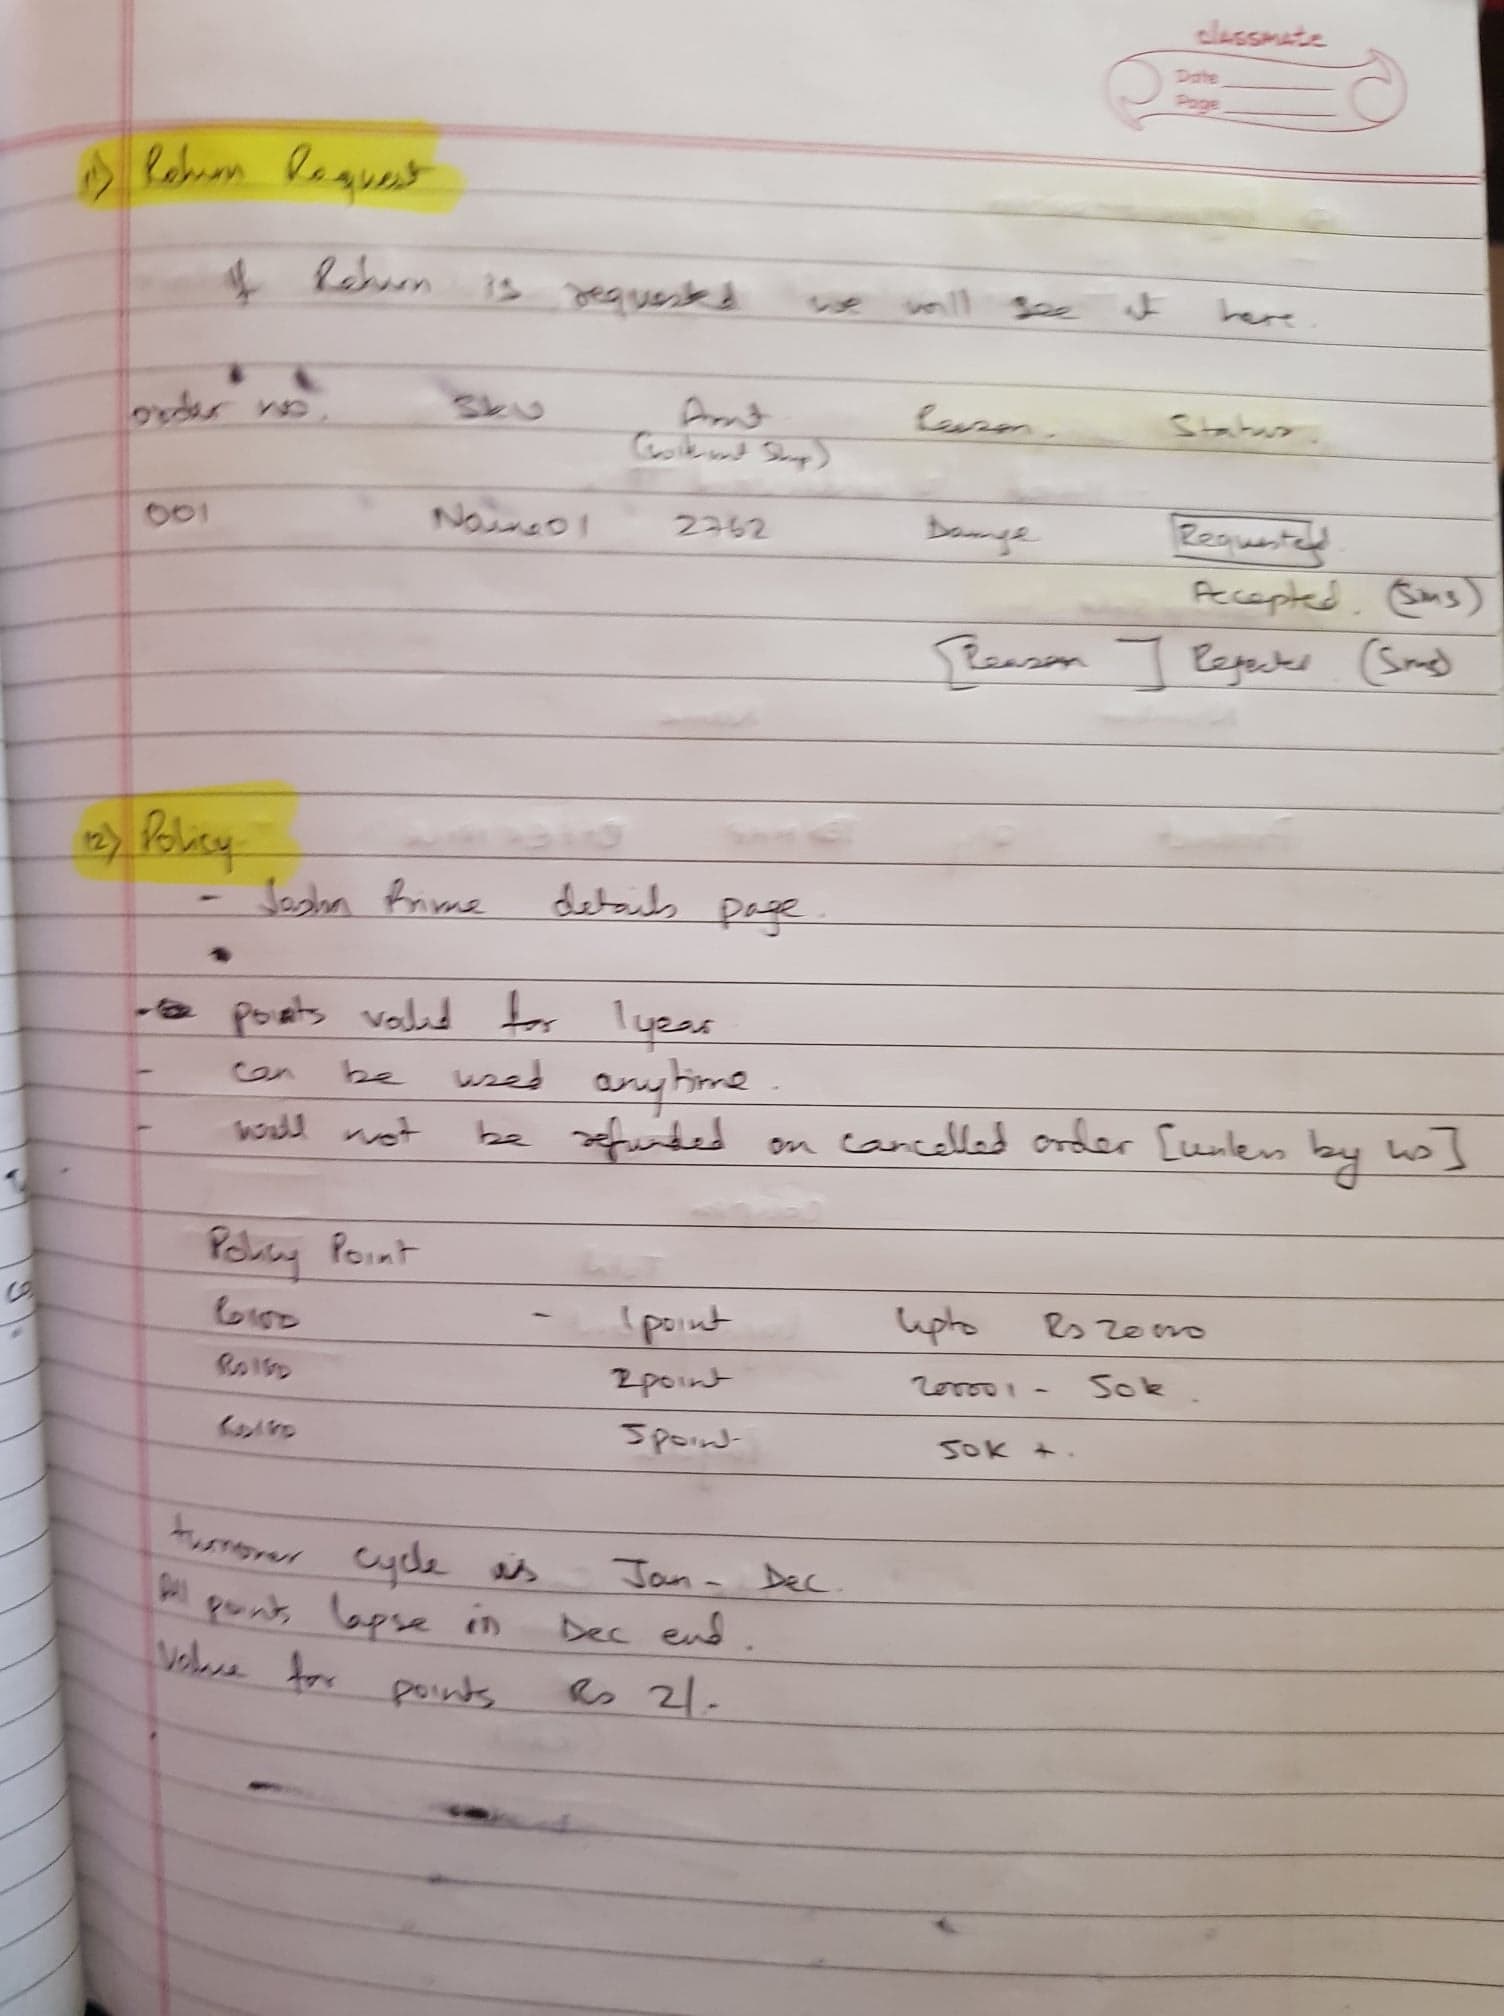 classmate
Date
Page
11) Return Request
If Return is requested we will see it here.
order no. SKU Amt Reason. Status.
(without Ship)
001 Naina01 2762 Damge Requested
Accepted. (Sms)
[Reason] Rejected (Sms)
12) Policy
- Jashn Prime details page.
- points valid for 1 year
- can be used anytime.
- will not be refunded on cancelled order [unless by us]
Policy Point
Rs100 - 1 point Upto Rs 20000
Rs100 2 point 200001 - 50k.
Rs100 5 point 50K +.
turnover cycle is Jan - Dec.
All points lapse in Dec end.
Value for points Rs 2/-